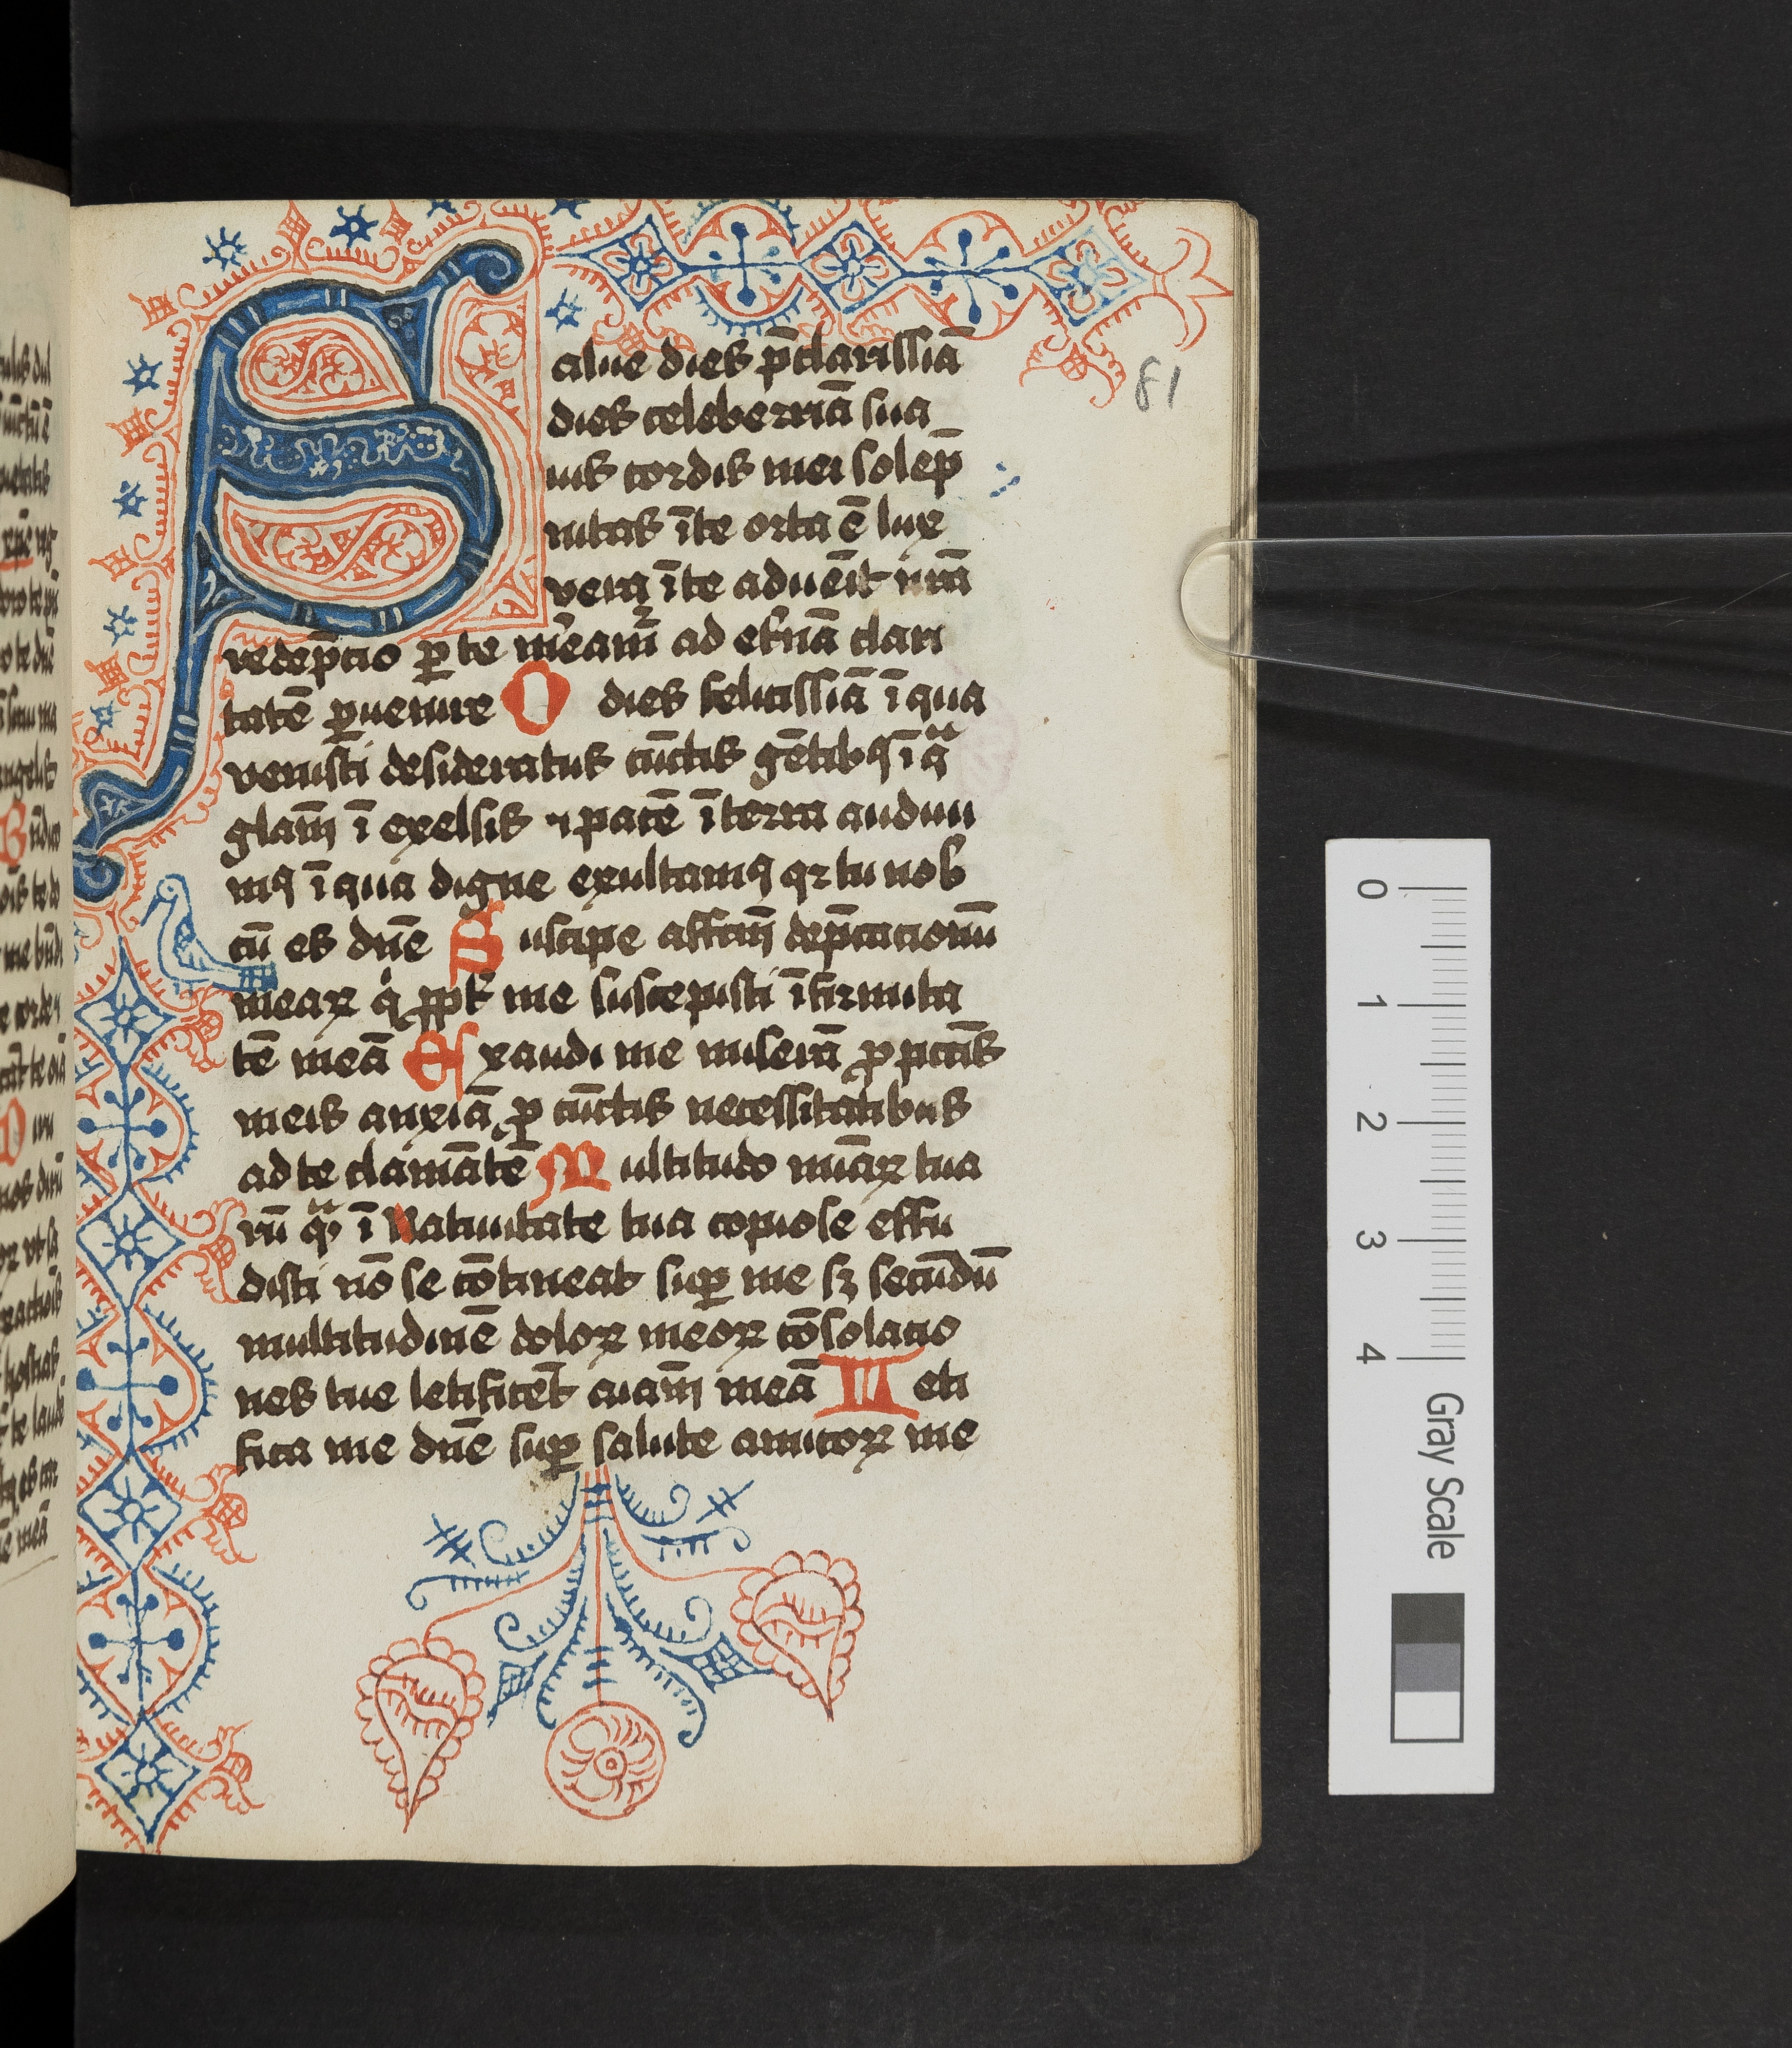 Salue dies p̄clarissīa
dies celeberrīa sua
uis cordis mei solēp
nitas īte orta ē lux
vera īte aduēit nr̄a
redēpcio ꝑ te mēam᷑ ad et̄nā clari
tatē ꝑuenire O dies felicissīa ī qua
venisti desideratus cūctis gētibꝯ ī qᵃ
glām ī exelsis ⁊ pacē ī terra audiui
mꝯ ī qua digne exultamꝯ qꝛ tu nob
cū es dn̄e Suscipe affcm̄ dep̄cacionū
meaꝝ qͥ ꝓpt̄ me suscepisti īfirmita
tē meā Exaudi me miserā ꝓ pccāis
meis anxiā ꝓ cūctis necessitatibus
ad te clamātē Multitudo mīaꝝ tua
rū qᵃ ī Natiuitate tua copiose effu
disti nō se cōtineat suꝑ me sꝫ secūdū
multitudinē doloꝝ meoꝝ cōsolacio
nes tue letificēt aīam meā Leti
fica me dn̄e suꝑ salute amicoꝝ me
81
0
1
2
3
4
Gray Scale